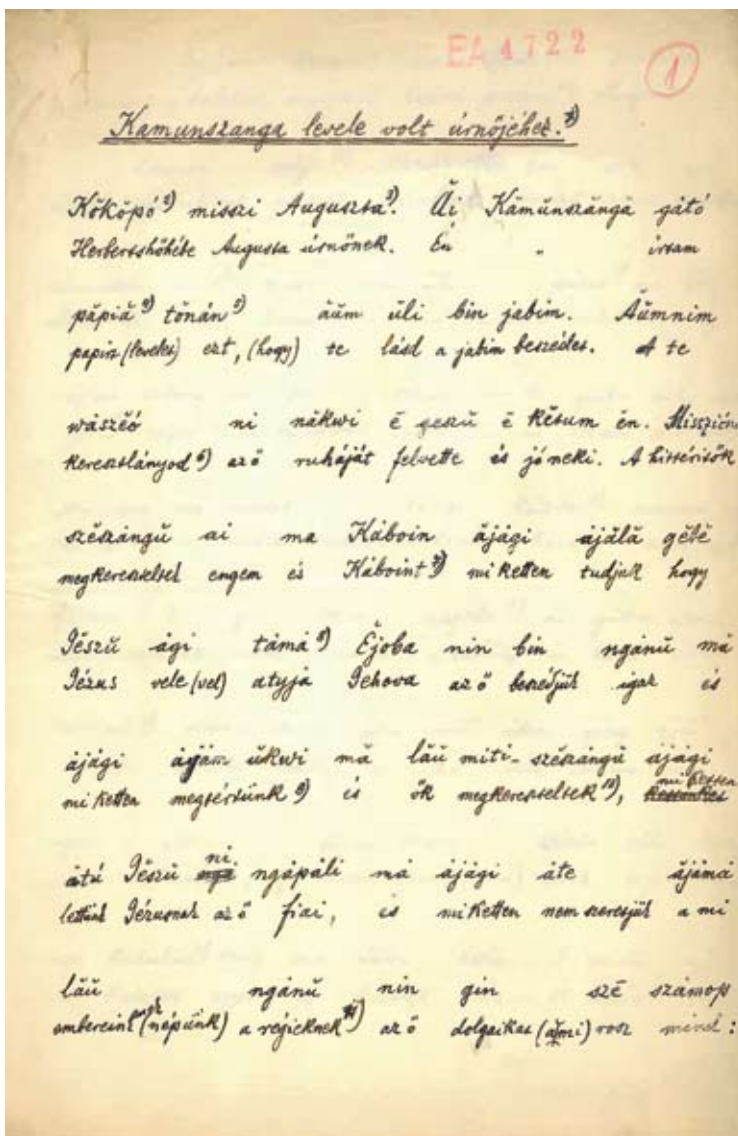 EA 4722
1
Kamunszanga levele volt úrnőjéhez.1)
Kŏkŏpó2) misszi Auguszta3). Ăi Kămŭnszăngă gátó
Herbertshöhébe Augusta úrnőnek. Én " írtam
păpiă4) tŏnán5) ăŭm ŭli bin jabim. Ăŭmnim
papirt (levelet) ezt, (hogy) te lásd a jabim beszédet. A te
wászĕó ni năkwi ĕ geszŭ ĕ kĕtum én.
keresztlányod6) az ő ruháját felvette és jóneki. A hittérítők
szĕszángŭ ai ma Káboin ăjági ájălă gĕbĕ
megkereszteltek engem és Káboint7) mi ketten tudjuk hogy
Jĕszŭ ági támá8) Ĕjoba nin bin ngánŭ mă
Jézus vele (vel) atyjá Jehova az ő beszédjük igaz és
ájági ájám ŭkwi mă lăŭ miti-szĕszángŭ ájági
mi ketten megtértünk9) és ők megkereszteltek10), mi ketten
átú Jĕszŭ ni ngápáli má ájági áte ăjámá
lettünk Jézusnak az ő fiai, és mi ketten nem szeretjük a mi
lăŭ ngánŭ nin gin szĕ számop
embereink (népünk) a régieknek11) az ő dolgaikat (ămi) rosz mind: